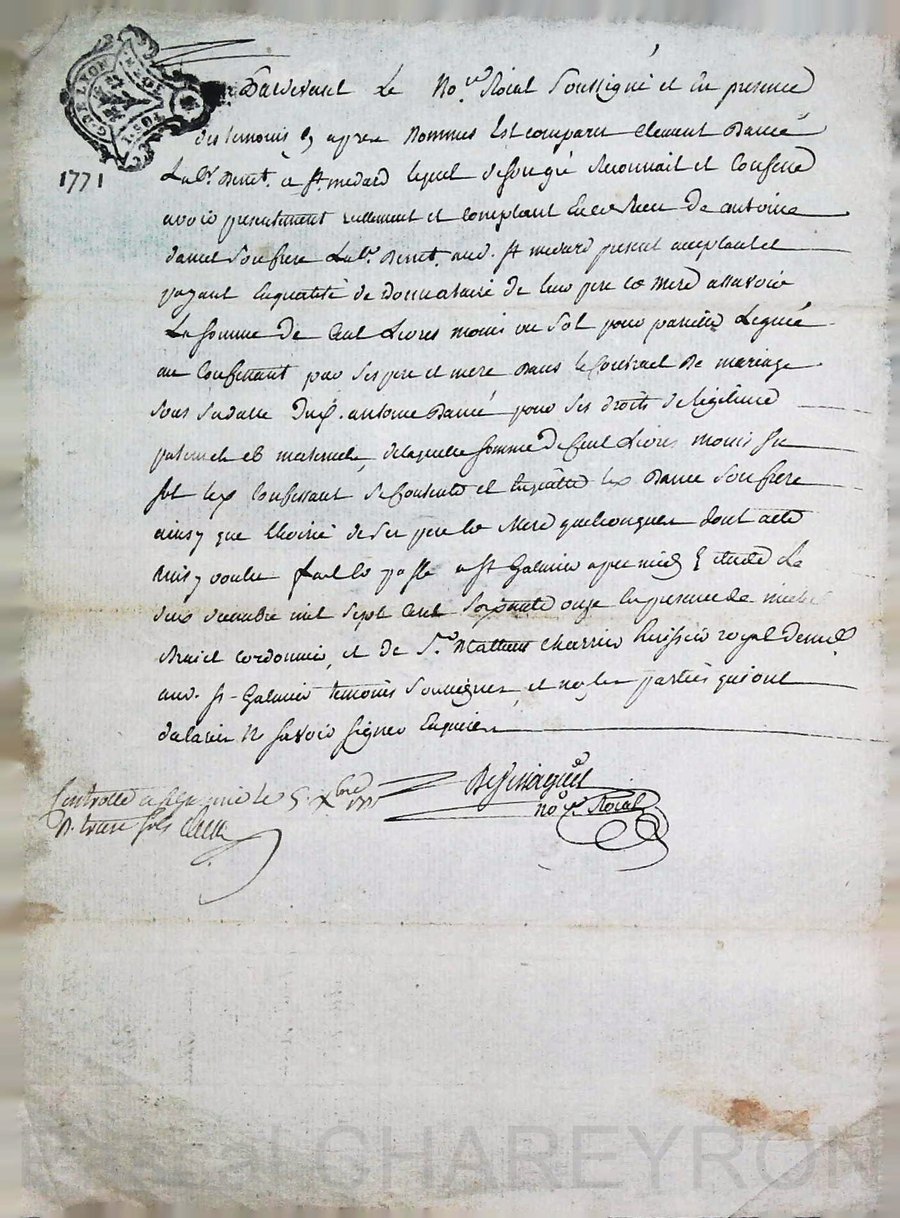 G. DE LYON
1771
Pardevant Le No.re Roial Soussigné et En presence
des temoins cy apres Nommes Est comparu Clement Damé
Lab.r demt. a St medard lequel de son gré Reconnait et Confesse
avoir presentement reellement et comptant Receu de antoine
damé Son frere Lab.r demt. aud. St medard present acceptant et
payant En qualité de Donnataire de leur pere et Mere assavoir
La Somme de Cent Livres moins un Sol pour pareille Leguée
au Confessant par Ses pere et mere Dans le Contract De mariage
Sous Sa datte Dud. antoine Damé pour Ses droits de legitime
paternels et maternels, de laquelle Somme de Cent Livres moins un
Sol led. Confessant Se Contente et En quitte led. Damé Son frere
ainsy que L'hoirie de Ses pere et Mere quelconques dont acte
Ainsy voulu fait et passé a St Galmier apres midy Etude Le
deux decembre mil Sept Cent Soixante onze En presence de michel
cordonnier, et de S.r Mathieu cherrier huissier royal
aud. St Galmier temoins Soussignes, et non les parties qui ont
declarer Ne Savoir Signer Enquises
No.re Roial
Controllé a St Galmier le 5. Xbre 1771
R. treize Sols
Pascal CHAREYRON